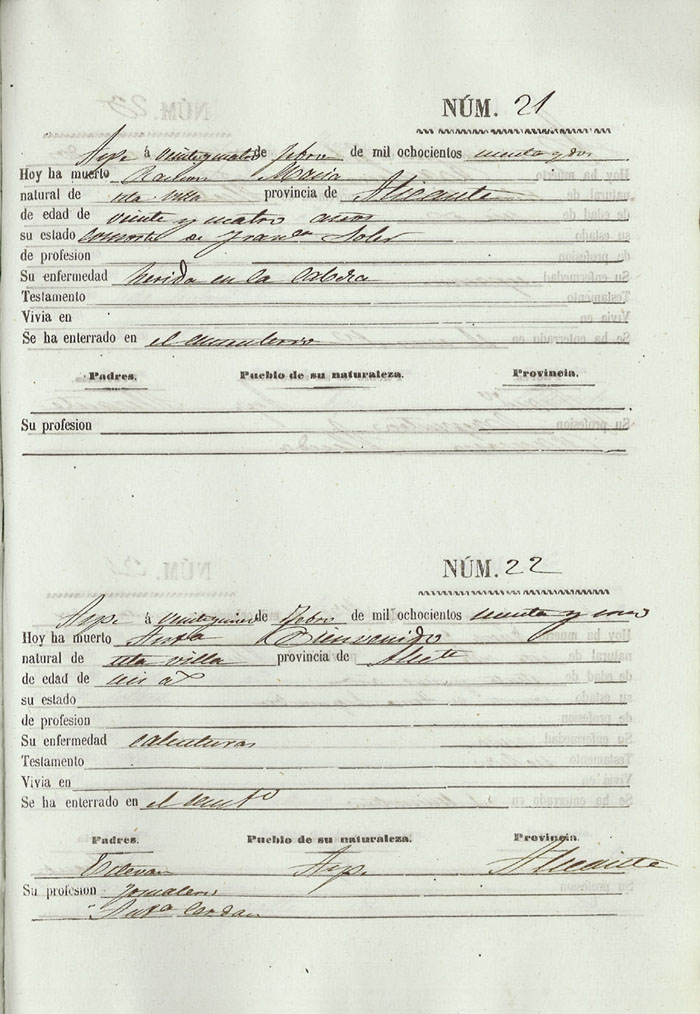 NÚM. 21
Aspe á veinteycuatro de Febro de mil ochocientos
Hoy ha muerto Maria
natural de esta villa provincia de Alicante
de edad de veinte y cuatro años
su estado consorte de Franco Soler
de profesion
Su enfermedad herida en la cabeza
Testamento
Vivia en
Se ha enterrado en el cementerio
Padres. Pueblo de su naturaleza. Provincia.
Su profesion
NÚM. 22
Aspe á de Febro de mil ochocientos
Hoy ha muerto Bienvenido
natural de esta villa provincia de Alicte
de edad de
su estado
de profesion
Su enfermedad calenturas
Testamento
Vivia en
Se ha enterrado en el
Padres. Pueblo de su naturaleza. Provincia.
Estevan Aspe Alicante
Su profesion Jornalero